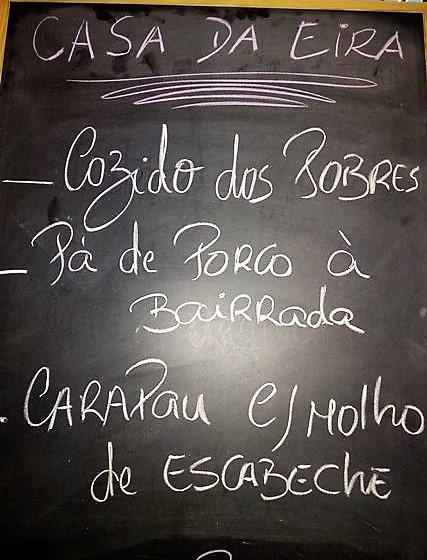 CASA DA EIRA
— Cozido dos POBRES
— Pá de PORCO à
BaiRRada
. CARAPau c/ Molho
de ESCABEChE